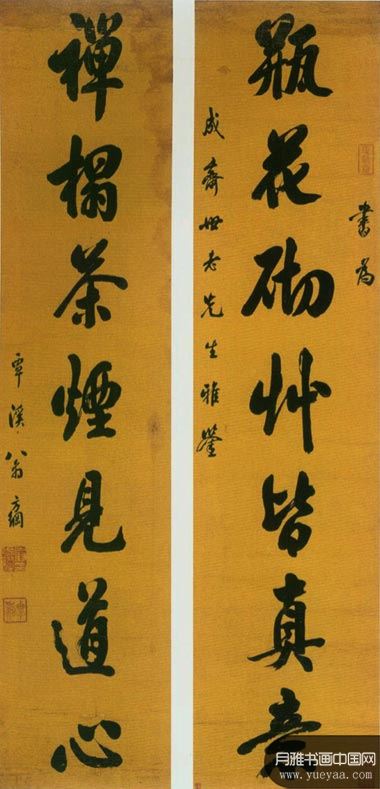 書為
瓶花砌艸皆真意
成齋世老先生雅鑒
禪榻茶煙見道心
覃溪翁方綱
月雅书画中国网
www.yueyaa.com